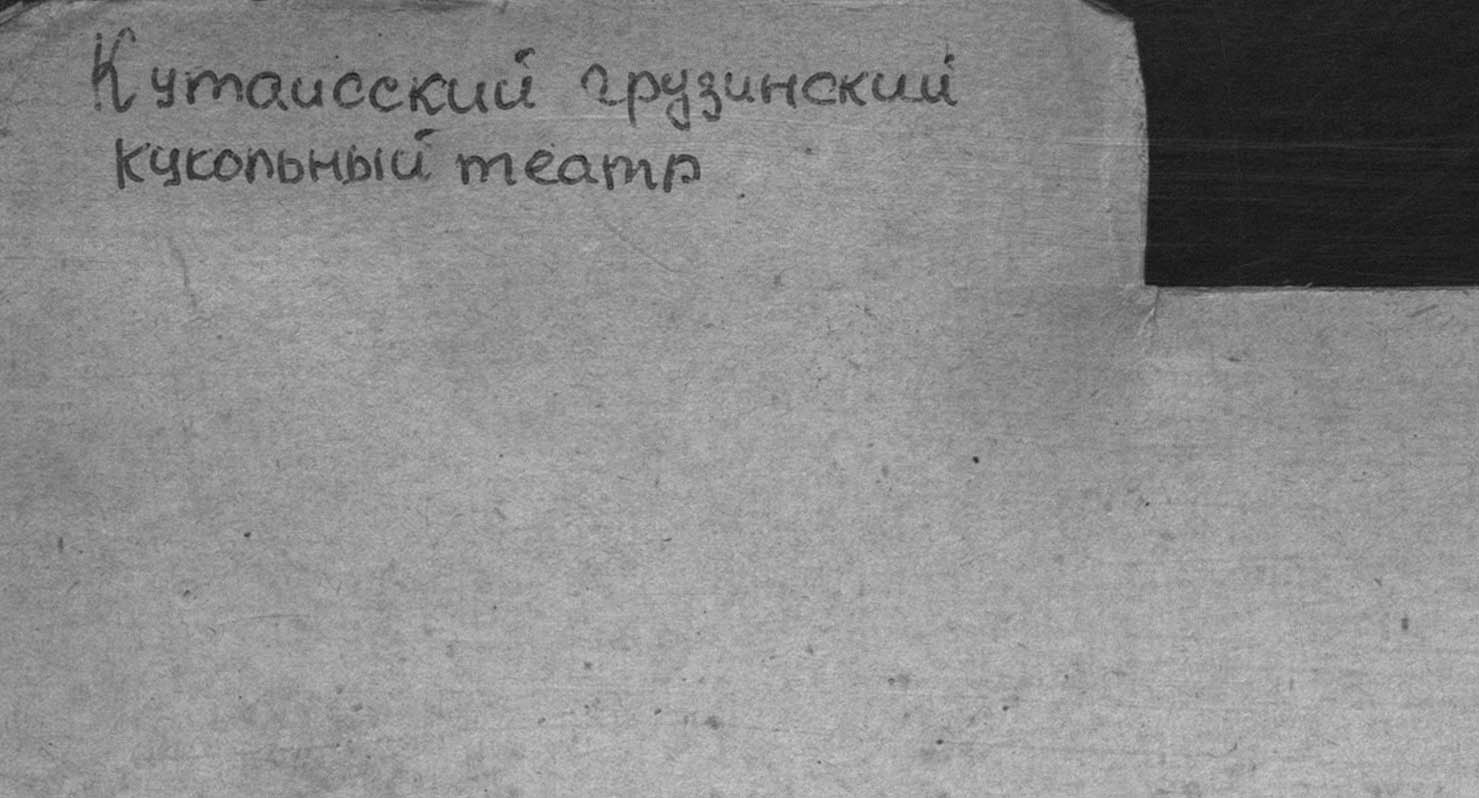 Кутаисский грузинский
кукольный театр